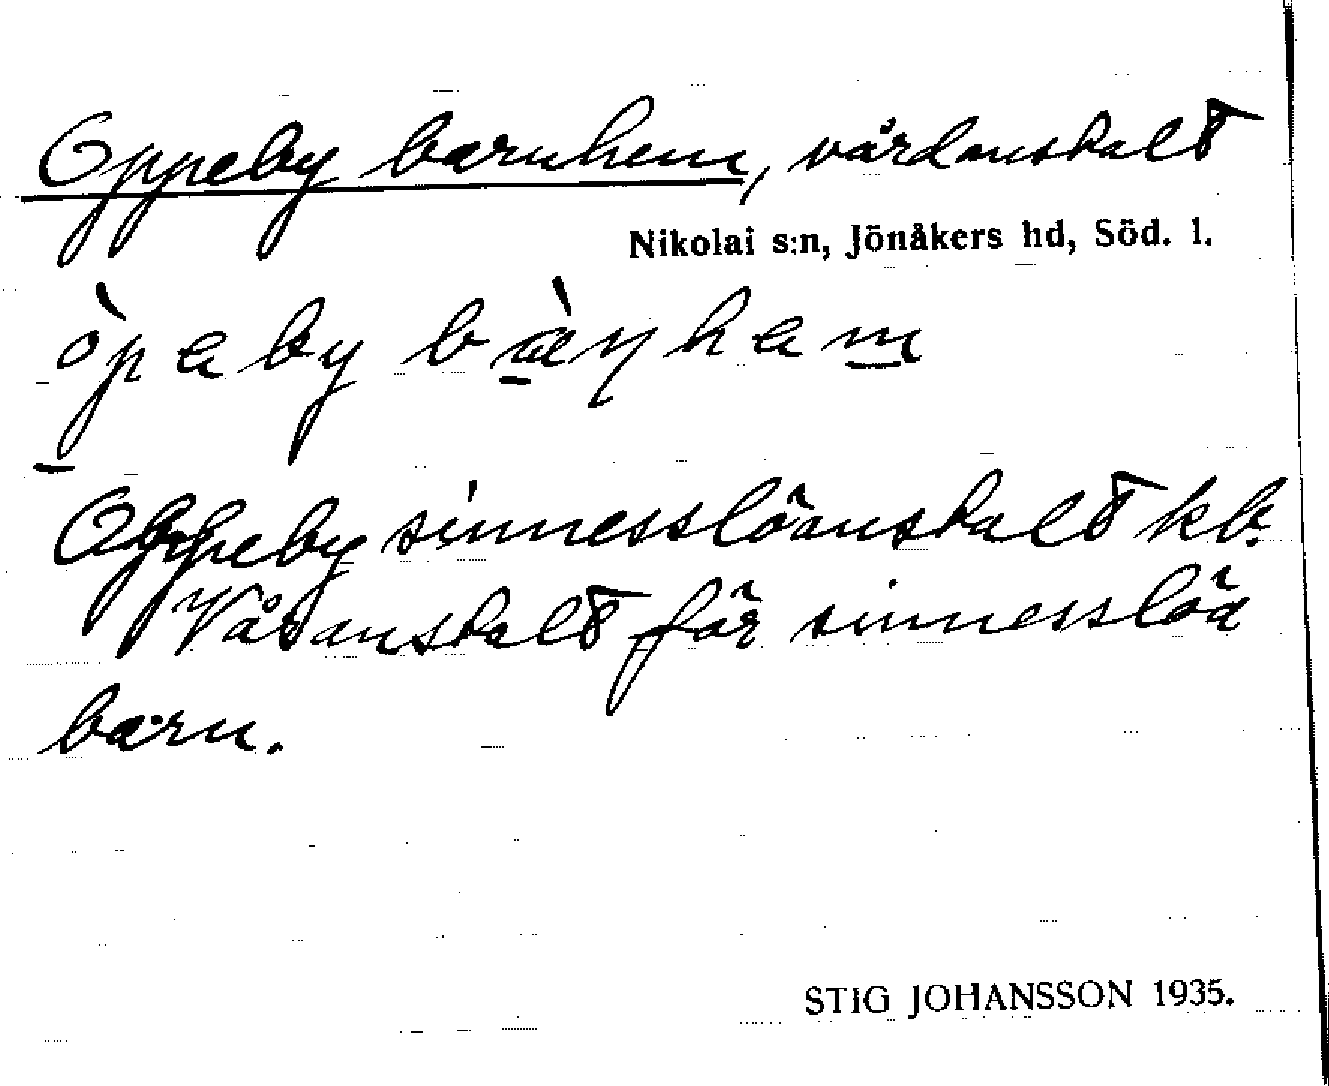 Oppeby barnhem, vårdanstalt
Nikolai s:n, Jönåkers hd, Söd. l.
òpeby bàɳhem
Oppeby sinnesslöanstalt kb.
Våranstalt för sinnesslöa
barn.
STIG JOHANSSON 1935.